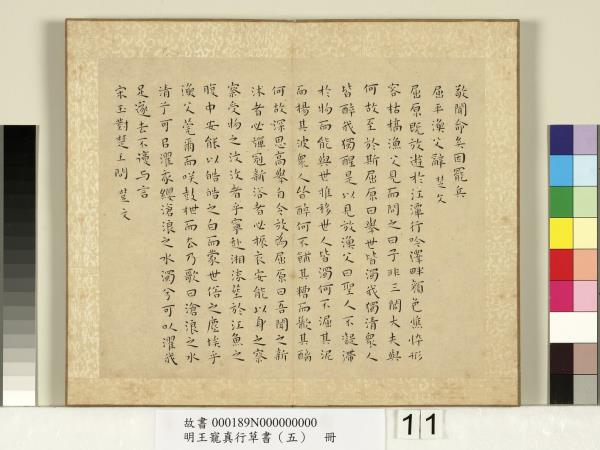 敬聞命矣因罷兵
屈平漁父辭 楚文
屈原既放遊於江潭行吟澤畔顏色憔悴形
容枯槁漁父見而問之曰子非三閭大夫與
何故至於斯屈原曰舉世皆濁我獨清眾人
皆醉我獨醒是以見放漁父曰聖人不凝滯
於物而能與世推移世人皆濁何不淈其泥
而揚其波眾人皆醉何不餔其糟而歠其醨
何故深思高舉自令放為屈原曰吾聞之新
沐者必彈冠新浴者必振衣安能以身之察
察受物之汶汶者乎寧赴湘流葬於江魚之
腹中安能以皓皓之白而蒙世俗之塵埃乎
漁父莞爾而咲鼓枻而去乃歌曰滄浪之水
清兮可㠯濯我纓滄浪之水濁兮可以濯我
足遂去不復与言
宋玉對楚王問 楚文
故書 000189N000000000
明王寵真行草書（五） 冊
11